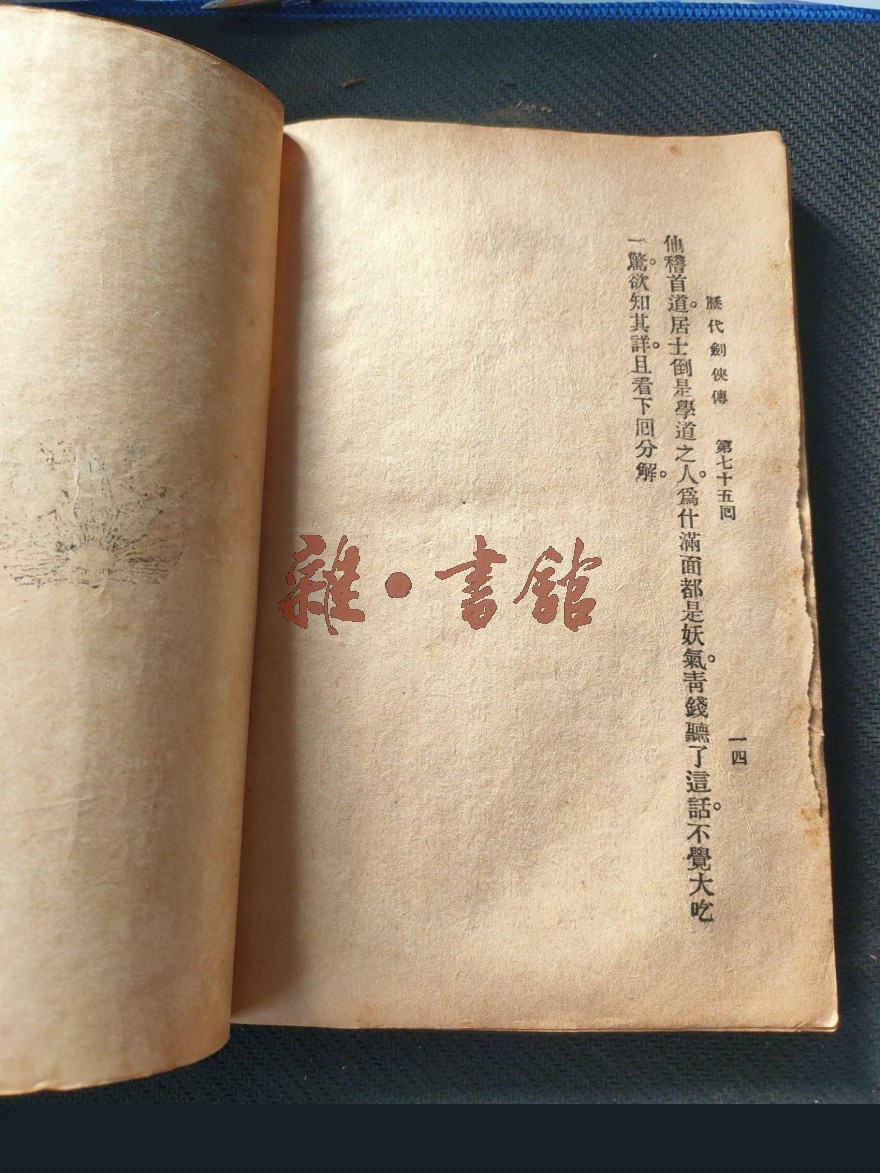 歷代劍俠傳　第七十五回　一四
仙稽首道。居士倒是學道之人。爲什滿面都是妖氣。靑錢聽了這話。不覺大吃
一驚。欲知其詳。且看下回分解。
雜·書館